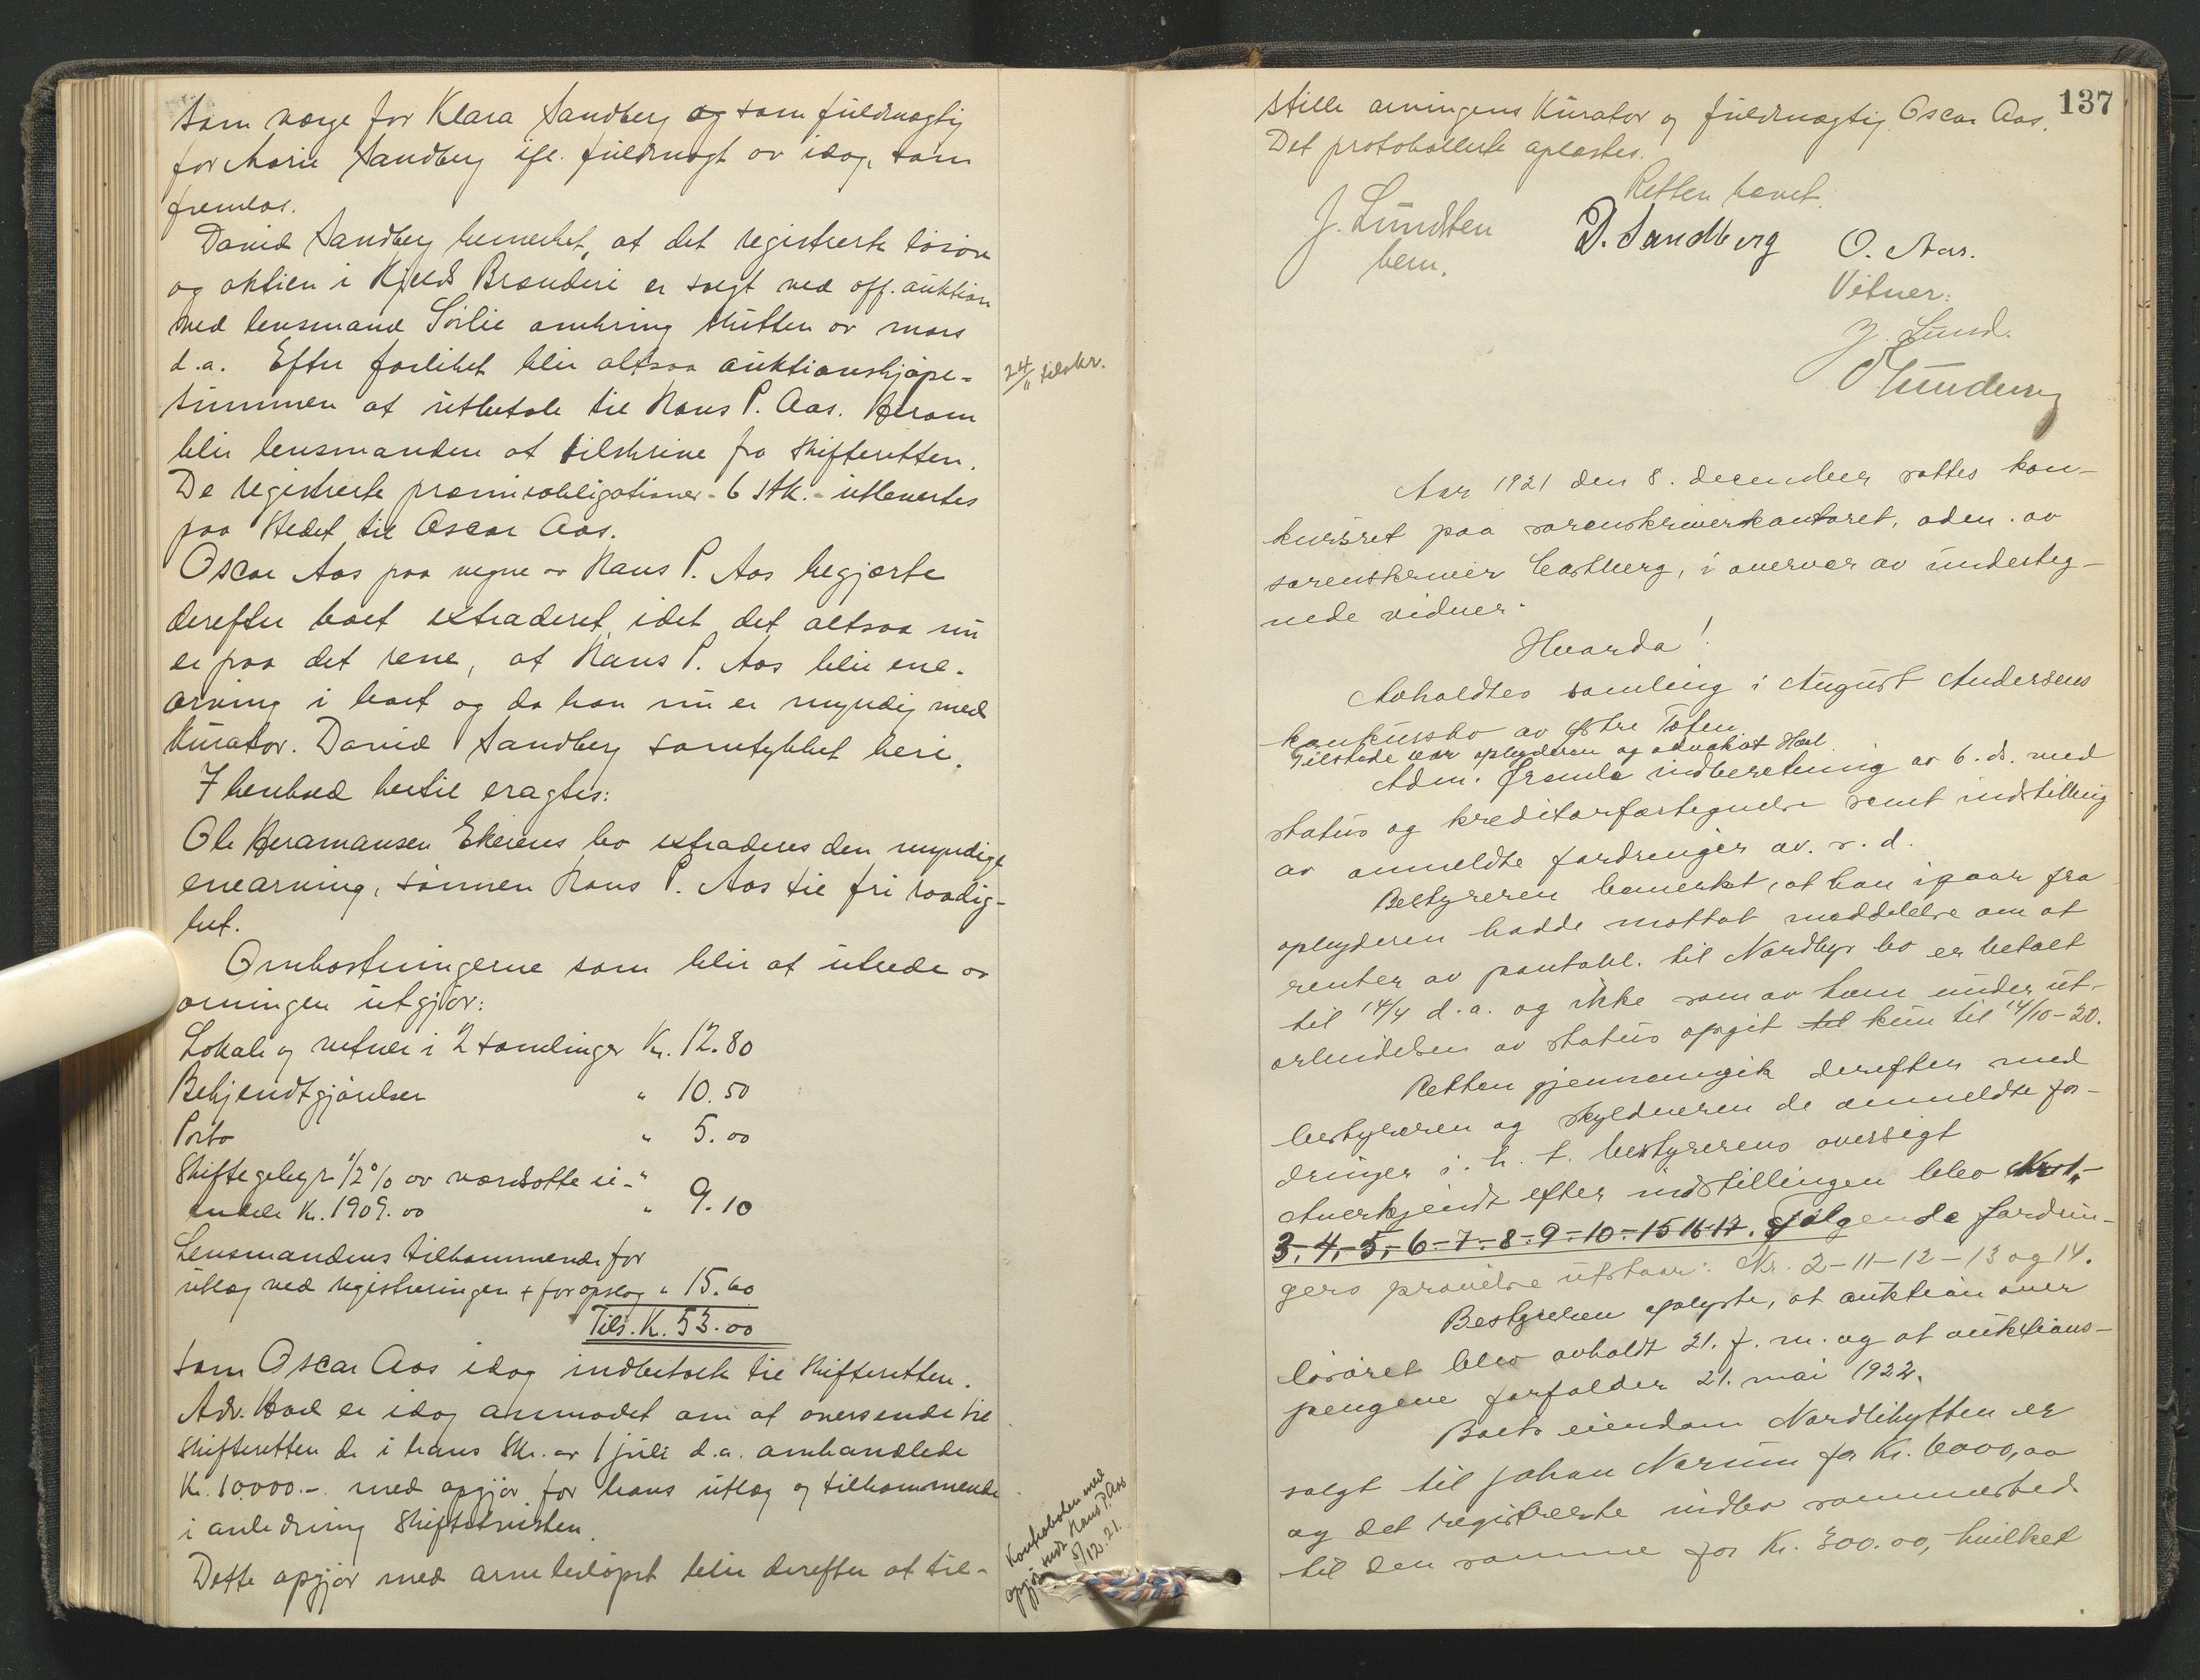 som værge for Klara Sandberg og som fuldmægtig
for Marie Sandberg ifl. fuldmagt av idag, som
fremlas.
David Sandberg bemerket, at det registrerte løsøre
og aktien i Kjelds Brænderi er solgt ved off. auktion
ved lensmand Sørlie omkring slutten av mars
d.a. Efter forliket blir altsaa auktionskjøpe-
summen at utbetale til Hans P. Aas. Herom
blir lensmanden at tilskrive fra skifteretten.
De registrerte præmieobligationer - 6 stk. - utlevertes
paa stedet til Oscar Aas.
Oscar Aas paa vegne av Hans P. Aas begjærte
derefter boet extraderet, idet det altsaa nu
er paa det rene, at Hans P. Aas blir ene-
arving i boet og da han nu er myndig med
kurator. David Sandberg samtykket heri.
I henhold hertil eragtes:
Ole Hermansen Ekerens bo extraderes den myndige
enearving, sønnen Hans P. Aas til fri raadig-
het.
Omkostningerne som blir at utrede av
arvingen utgjør:
Lokale og vitner i 2 samlinger Kr. 12.80
Bekjendtgjørelser " 10.50
Porto " 5.00
Skiftegebyr 1/2% av værdsatte ei- "
endele Kr. 1909.00 " 9.10
Lensmandens tilkommende for
utlæg ved registreringen + for opslag " 15.60
Tils. K. 53.00
som Oscar Aas idag indbetalte til skifteretten.
Adv. Hoel er idag anmodet om at oversende til
skifteretten de i hans skr. av 1 juli d.a. omhandlede
Kr. 10000.- med opgjør for hans utlæg og tilkommende
i anledning skiftetvisten.
Dette opgjør med arvebeløpet blir derefter at til-
24/11 tilskr.
Kontraboken med
opgjør sendt Hans P. Aas
5/12.21.
137
stille arvingens Kurator og fuldmægtig Oscar Aas.
Det protokollerte oplæstes.
Retten hævet.
J. Lundsten
bem.
D. Sandberg O. Aas.
Vitner:
J. Lund.
Aar 1921 den 8. december sattes kon-
kursret paa sorenskriverkontoret, adm. av
sorenskriver Castberg, i overvær av underteg-
nede vidner.
Hvorda!
Avholdtes samling i August Andersens
konkursbo av Østre Toten
Tilstede var opbyderen og advokat Hoel
Adm. fremla indberetning av 6. ds. med
status og kreditorfortegnelse samt indstilling
av anmeldte fordringer av. s. d.
Bestyreren bemerket, at han igaar fra
opbyderen hadde mottat meddelelse om at
renter av pantobl. til Nordbys bo er betalt
til 14/4 d.a. og ikke som av ham under ut-
arbeidelsen av status opgit til kun til 14/10-20.
Retten gjennemgik derefter med
bestyreren og skyldneren de anmeldte for-
dringer i. h. t. bestyrerens oversigt
Anerkjendt efter indstillingen blev Nr. 1,-
3,-4,-5,-6-7-8-9-10-15 16-17. Følgende fordrin-
gers prøvelse utstaar: Nr. 2-11-12-13 og 14.
Bestyreren oplyste, at auktion over
løsøret blev avholdt 21. f. m. og at auktions-
pengene forfalder 21. mai 1922.
Boets eiendom Nordlihytten er
solgt til Johan Narum for Kr. 6000,00
og det registrerte indbo sammesteds
til den samme for Kr. 300.00, hvilket